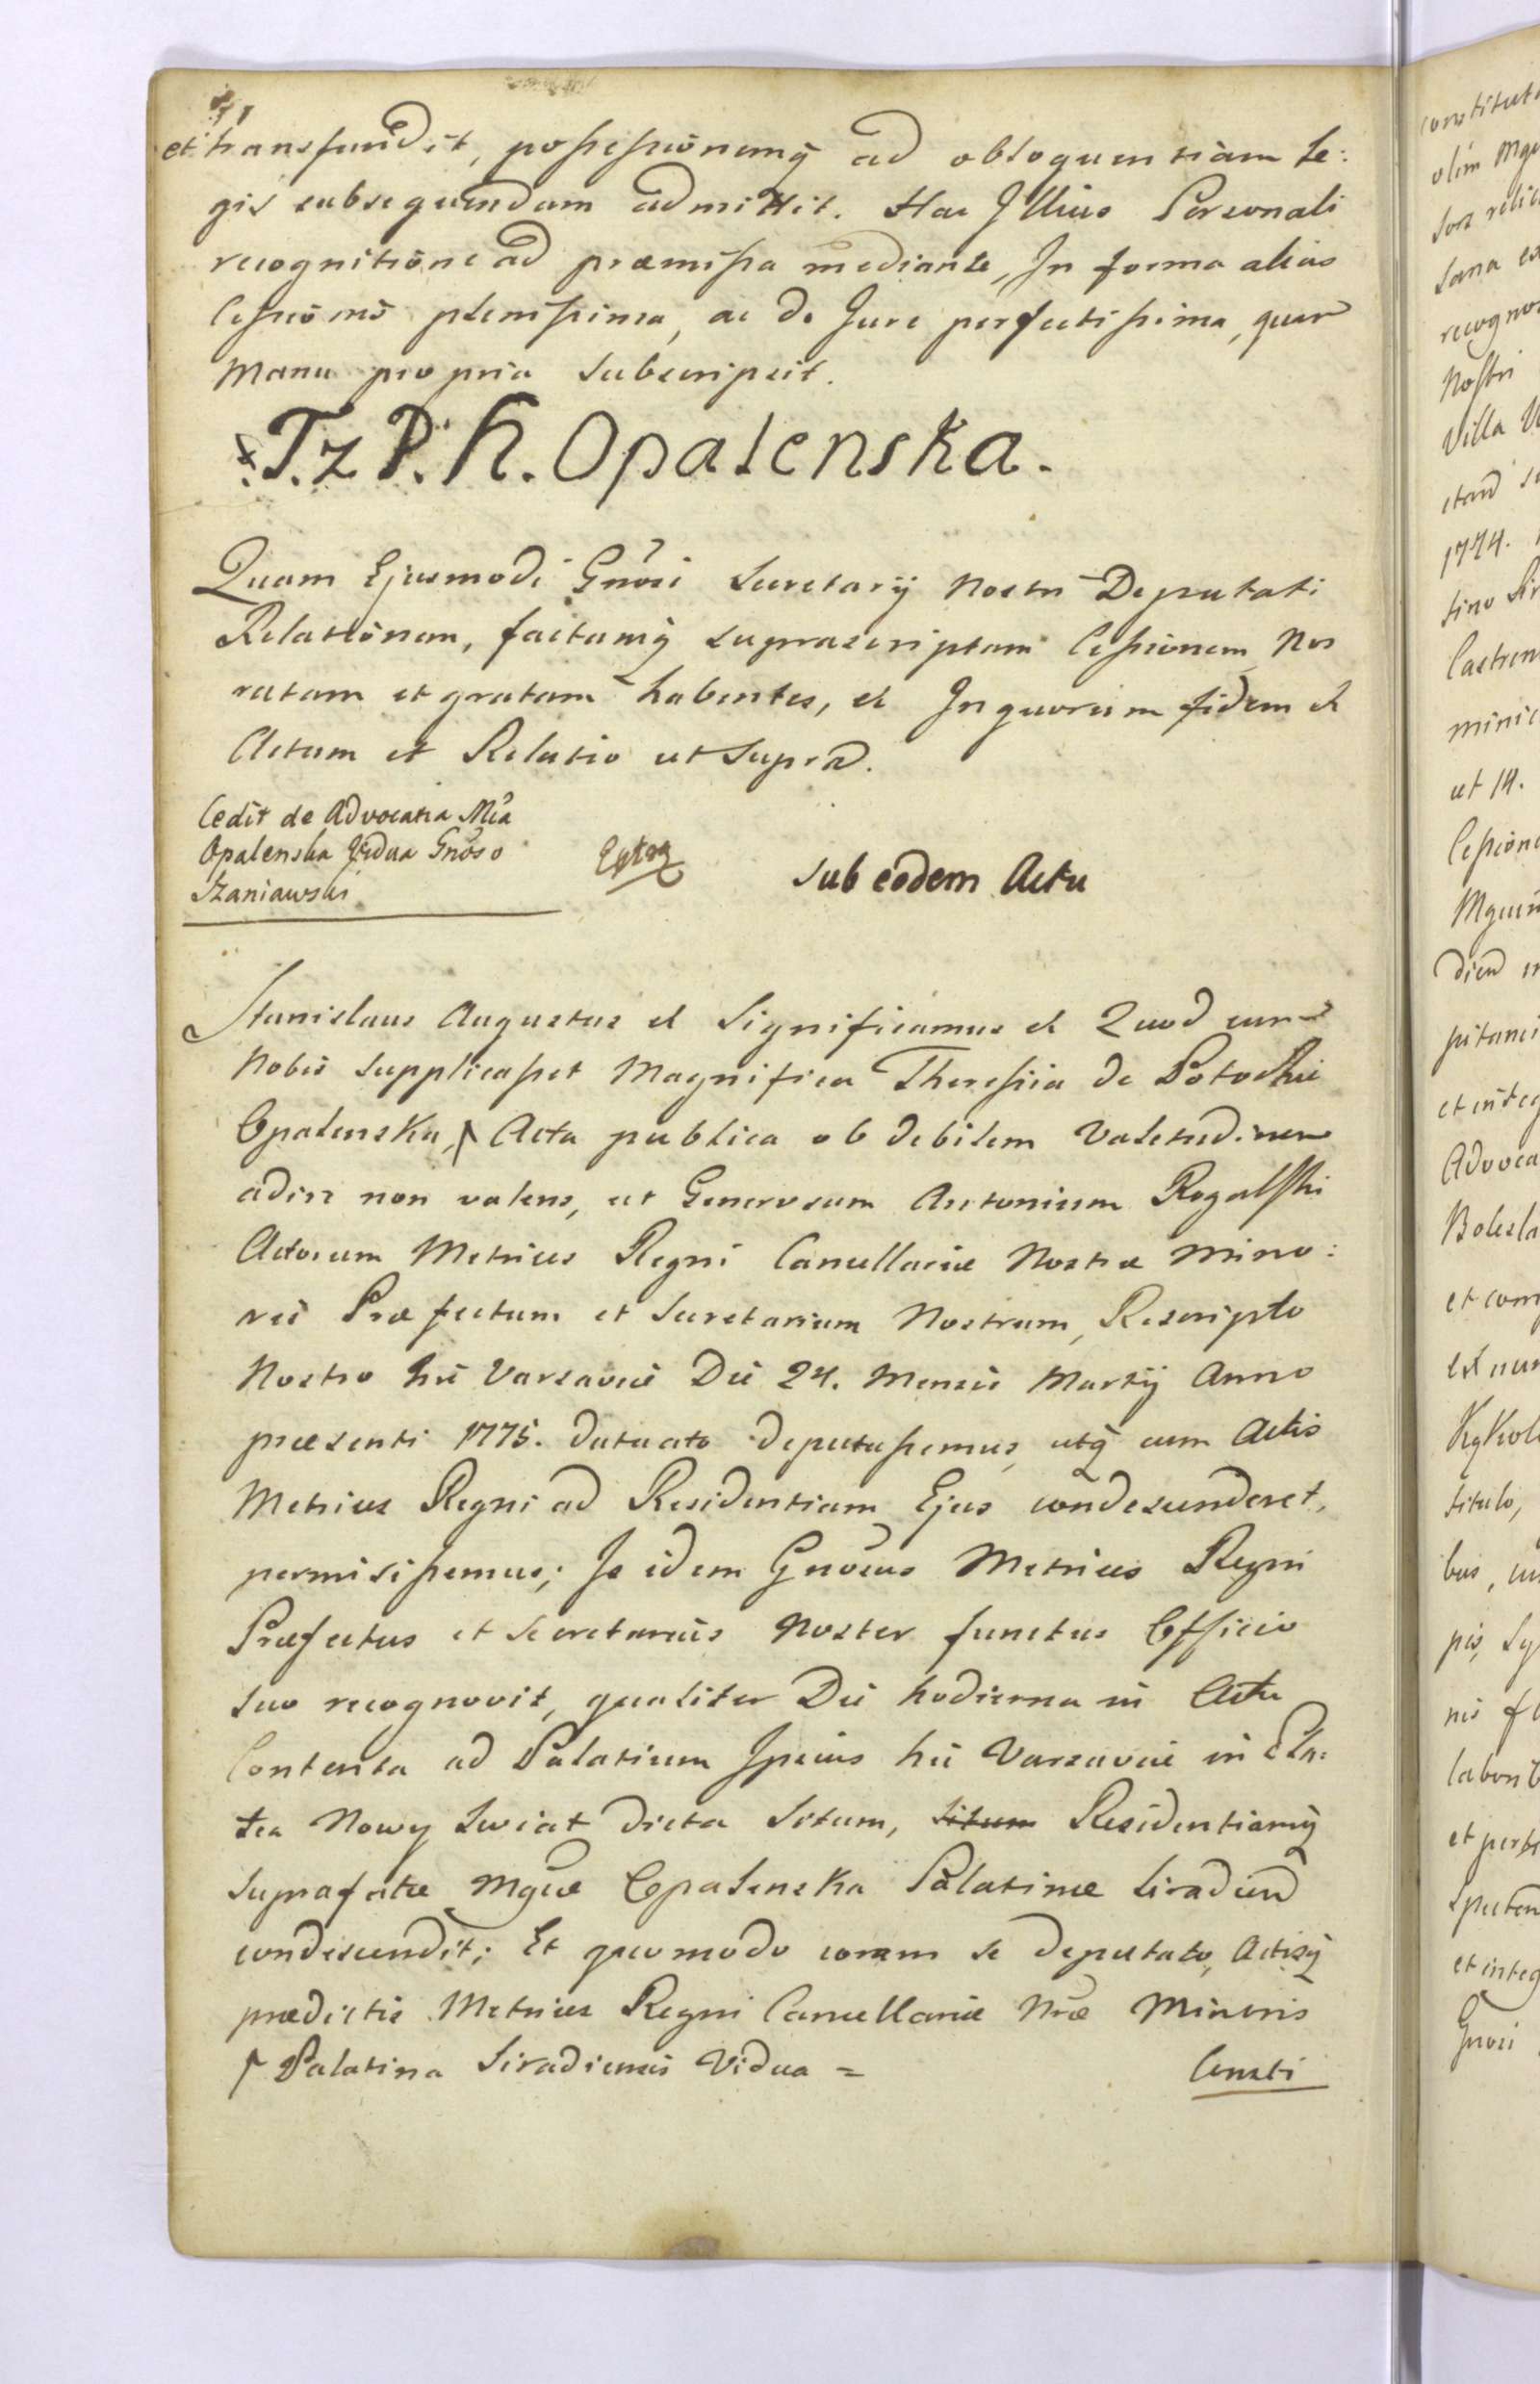 et transfundit, possessionemq̃ ad obloquentiam Le:
gis subsequendam admittit. Hac Illius Personali
recognitione ad præmissa mediante, In forma alias
Cessionis plenissima, ac de Jure perfectissima, quam
Manu propria subscripsit.
T. z P. K. Opalenska.
Quam Ejusmodi Gnõsi Secretarij Nostri Deputati
Relationem, factamq̃ suprascriptam Cessionem Nos
ratam et gratam habentes, et In quorum fidem et
Actum et Relatio ut Supra.
Cedit de Advocatia Mca
Opalenska Vidua Gnõso
Szaniawski
Extra
Sub eodem Actu
Stanislaus Augustus et Significamus et Quod cum
Nobis supplicasset Magnifica Theressia de Potockie
Opalenska, Acta publica ob debilem Valetudinem
adire non valens, ut Generosum Antonium Rogalski
Actorum Metrices Regni Cancellariæ Nostræ Mino:
ris Præfectum et Secretarium Nostrum, Rescripto
Nostro hic Varsaviæ Die 24. Mensis Martij Anno
præsenti 1775. dato deputassemus, utq̃ cum Actis
Metrices Regni ad Residentiam Ejus condescenderet,
permisissemus; Is idem Gnõsus Metrices Regni
Præfectus et Secretarius Noster functus Officio
suo recognovit, qualiter Die hodierna in Actu
Contenta ad Palatium Ipsius hic Varsaviæ in Pla:
tea Nowy Swiat dicta Situm, situm Residentiamq̃
suprafatæ Mgcæ Opalenska Palatinæ Siradien
condescendit; Et quomodo coram se deputato, Actisq̃
prædictis Metrices Regni Cancellariæ Nræ Minoris
Palatina Siradiensis Vidua =
Consti
constitut
olim Mg
Sors relic
Sana ex
recogno
Nostri
Villa
1774.
Castren
minic
ut 14.
Cession
pitanei
et integ
Advoca
Bolesla
et com
ex nun
titulo,
bus,
nis
et integ
Gnõsi